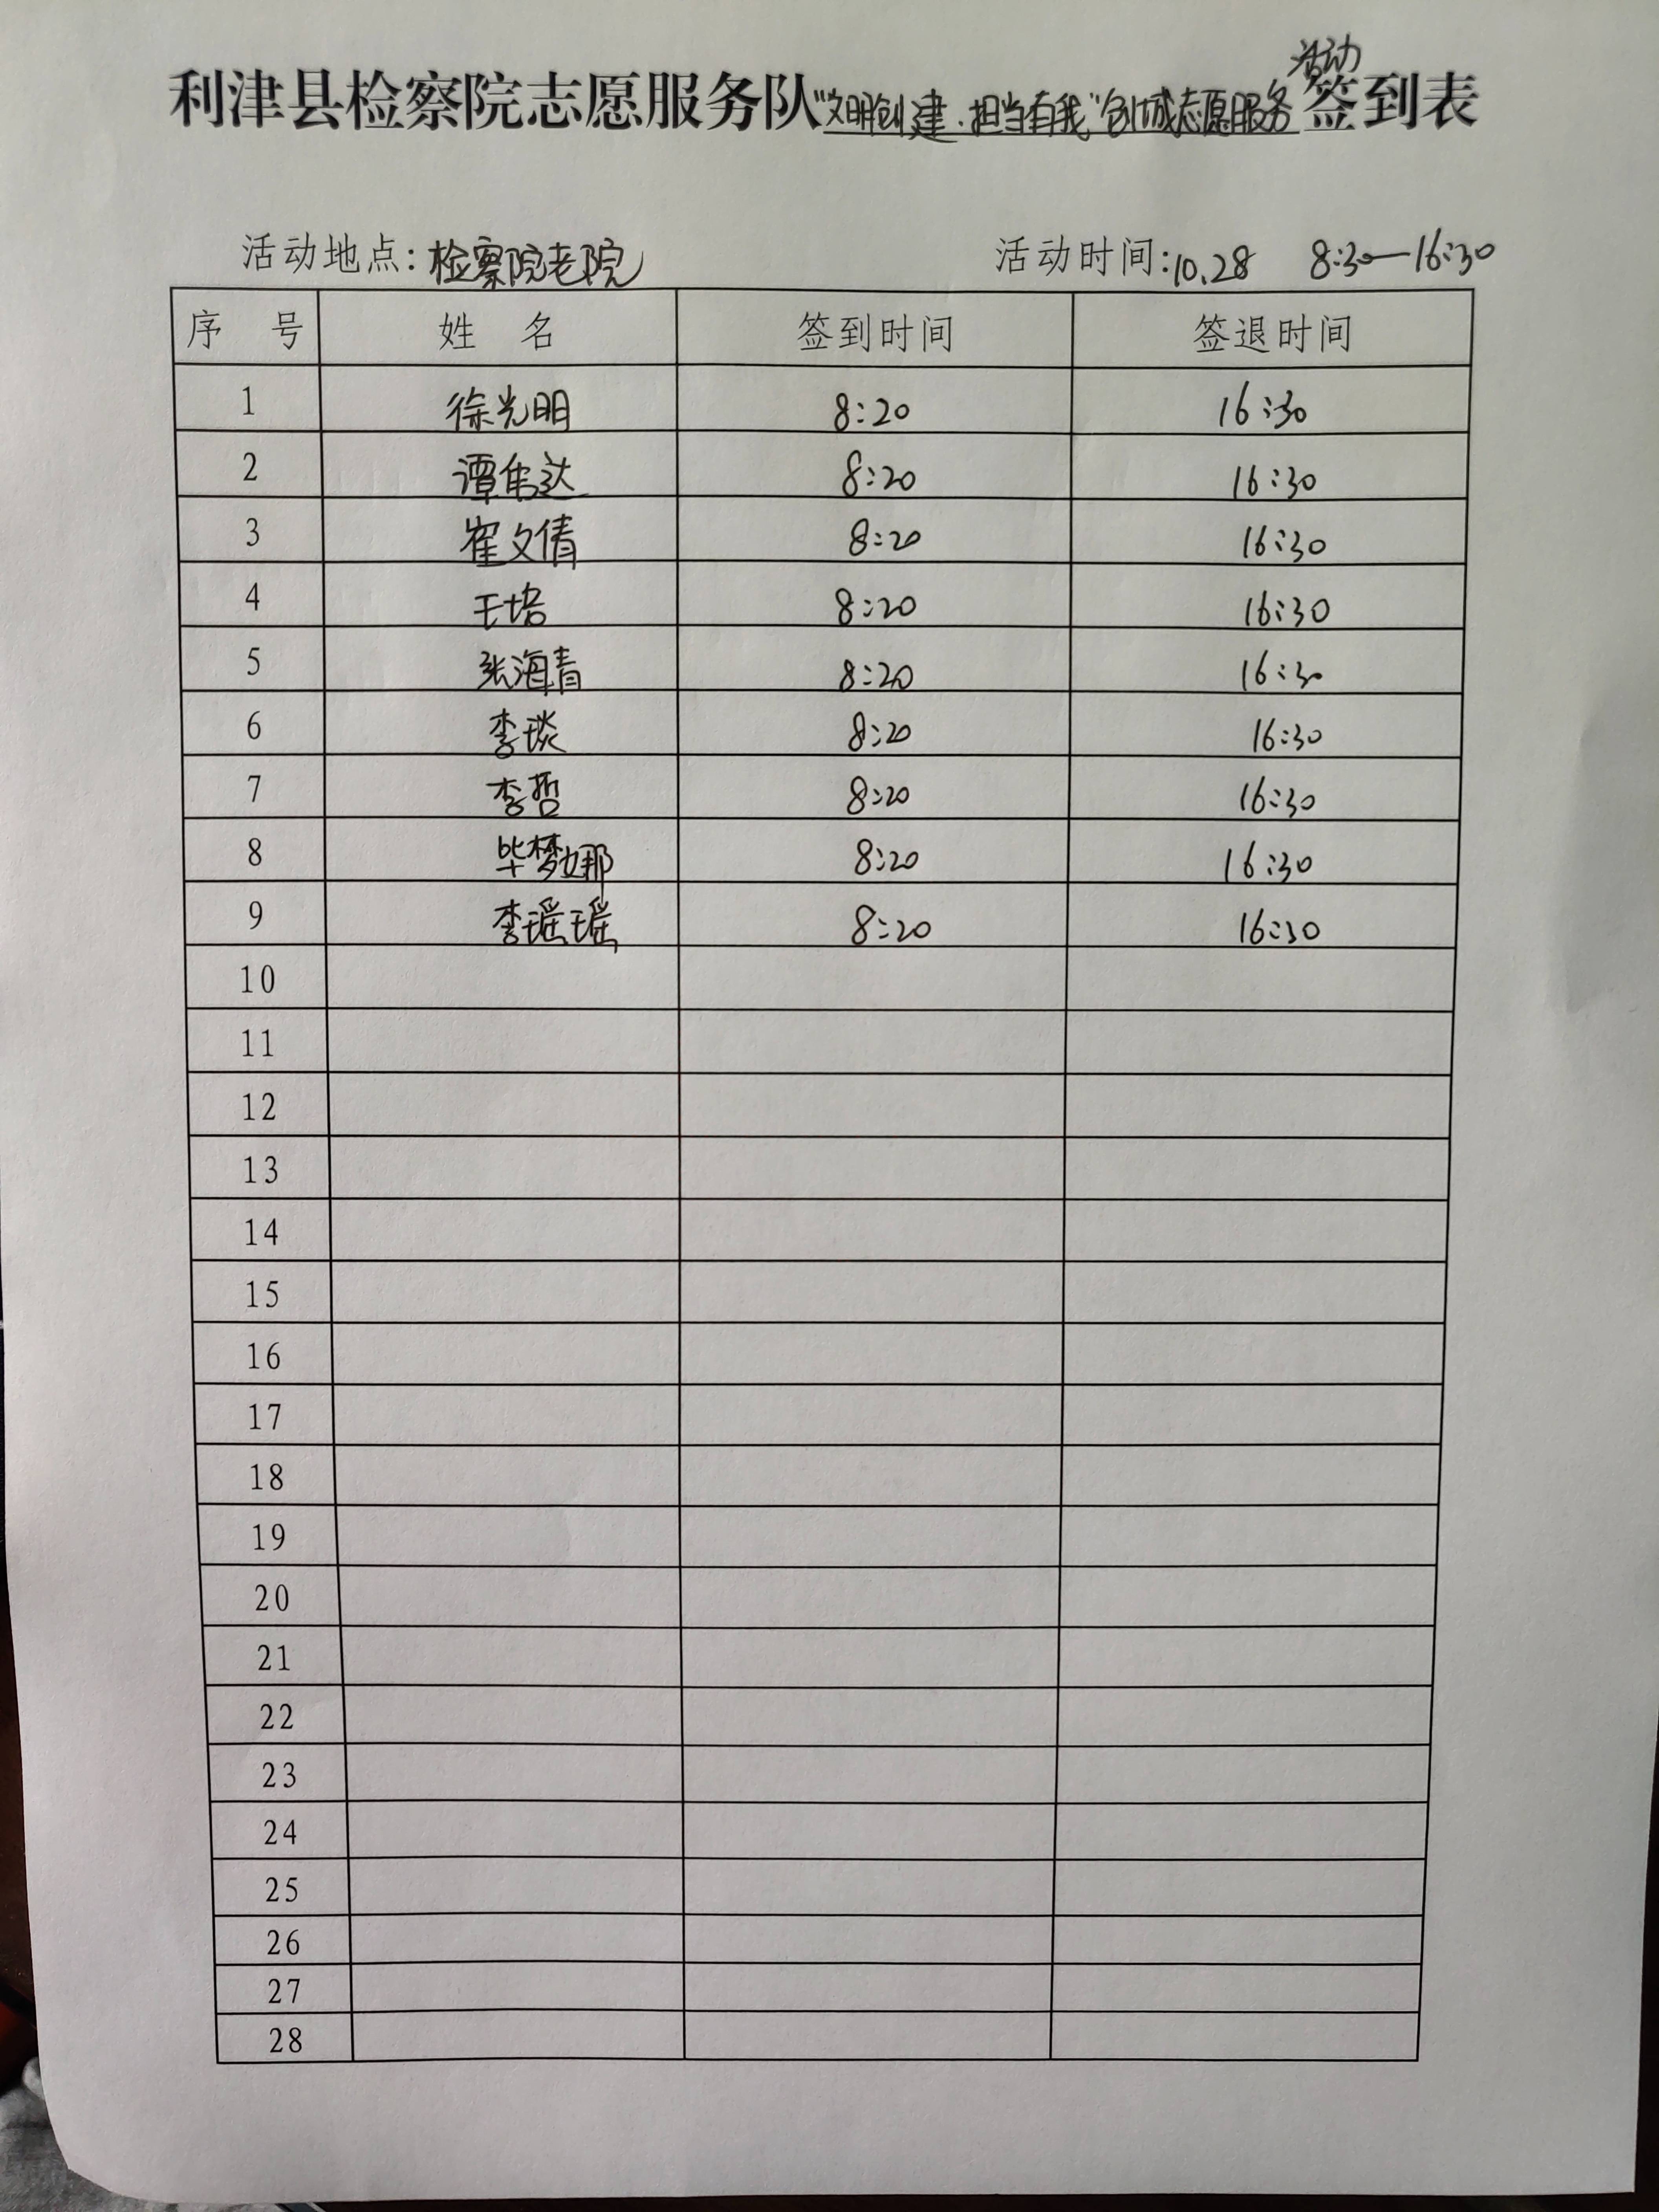 利津县检察院志愿服务队"文明创建·担当有我"创城志愿服务活动签到表
活动地点:检察院老院 活动时间:10.28 8:30—16:30
序 号 姓 名 签到时间 签退时间
1 徐光明 8:20 16:30
2 谭伟达 8:20 16:30
3 崔文倩 8:20 16:30
4 王培 8:20 16:30
5 张海青 8:20 16:30
6 李琰 8:20 16:30
7 李哲 8:20 16:30
8 毕梦娜 8:20 16:30
9 李瑶瑶 8:20 16:30
10
11
12
13
14
15
16
17
18
19
20
21
22
23
24
25
26
27
28